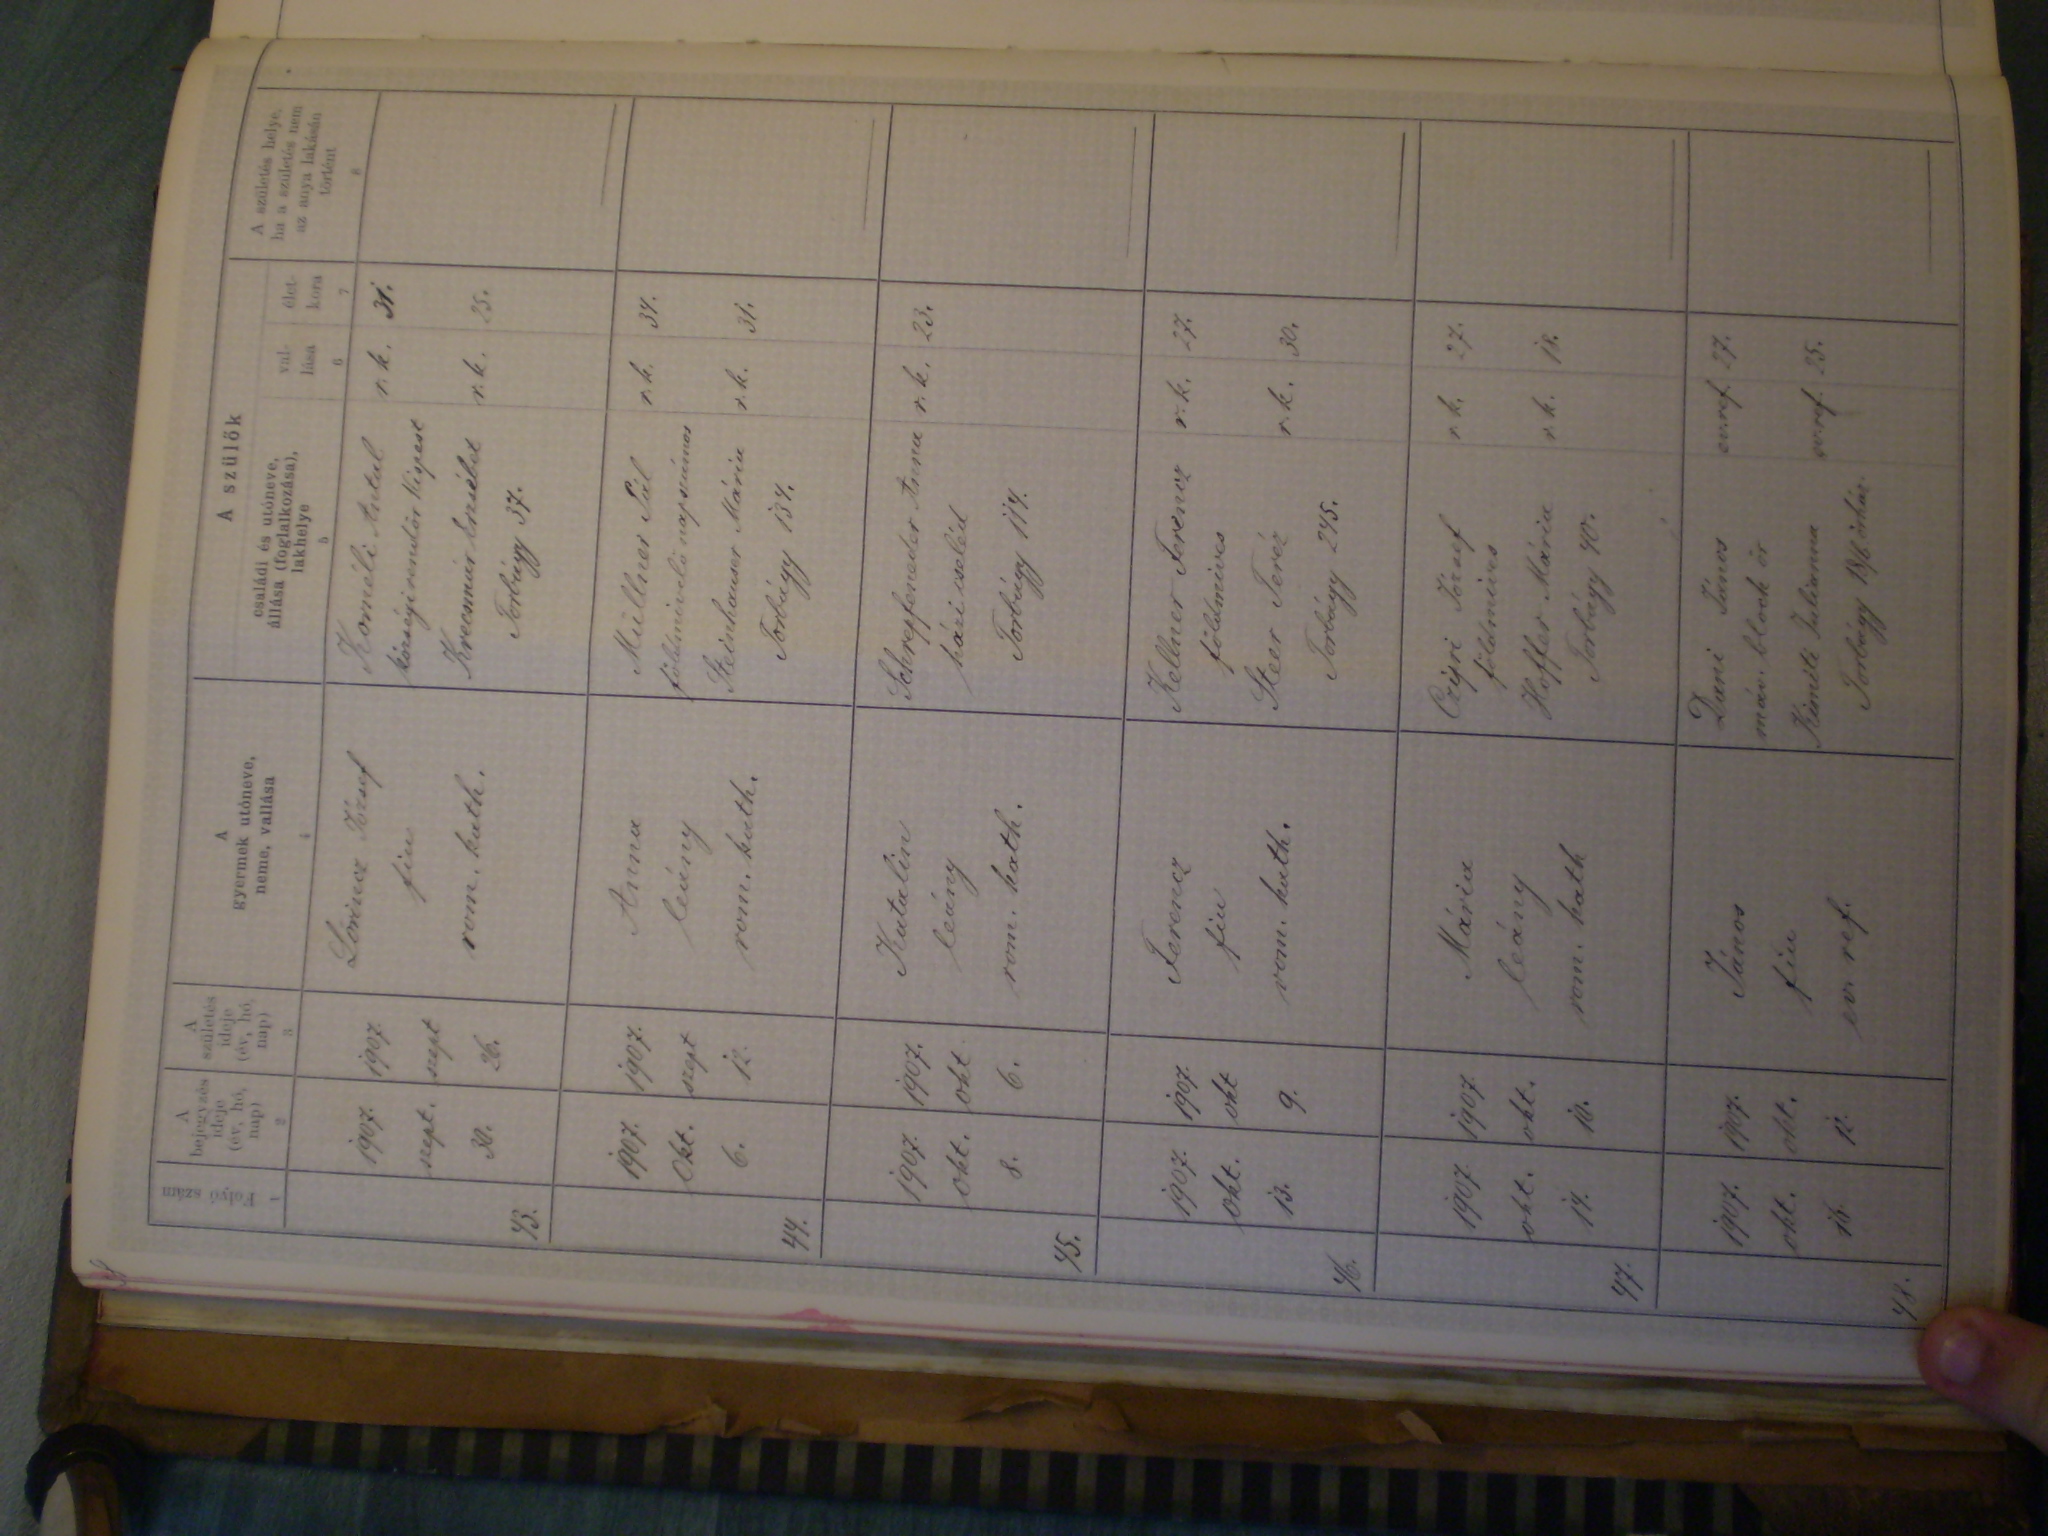 A szülők
Folyó szám
A
bejegyzés
ideje
(év, hó,
nap)
A
születés
ideje
(év, hó,
nap)
A
gyermek utóneve,
neme, vallása
családi és utóneve,
állása (foglalkozása),
lakhelye
val-
lása
élet-
kora
A születés helye,
ha a születés nem
az anya lakásán
történt
1
2
3
4
5
6
7
8
43.
1907.
szept.
30.
1907.
szept
26.
Lőrincz József
fiu
rom. kath.
Koméli Antal
községi rendőr Kispest
Krecsmár Erzsébet
Torbágy 37.
r. k.
31.
r. k.
25.
44.
1907.
Okt.
6.
1907.
szept
12.
Anna
leány
rom. kath.
Müllner Pál
földmivelő napszámos
Steinhauser Mária
Torbágy 134.
r. k.
34.
r. k.
31.
45.
1907.
okt.
8.
1907.
okt.
6.
Katalin
leány
rom. kath.
Schrepfeneder Anna
házi cseléd
Torbágy 114.
r. k.
23.
46.
1907.
okt.
13.
1907.
okt
9.
Ferencz
fiu
rom. kath.
Kellner Ferencz
földmives
Steer Teréz
Torbágy 245.
r. k.
27.
r. k.
30.
47.
1907.
okt.
14.
1907.
okt.
10.
Mária
leány
rom. kath
Czigri József
földmives
Hoffer Mária
Torbágy 40.
r. k.
27.
r. k.
18.
48.
1907.
okt.
16.
1907.
okt.
12.
János
fiu
ev. ref.
Dani János
máv. block őr
Kimiti Julianna
Torbágy 186 őrház.
ev. ref.
27.
ev. ref.
25.